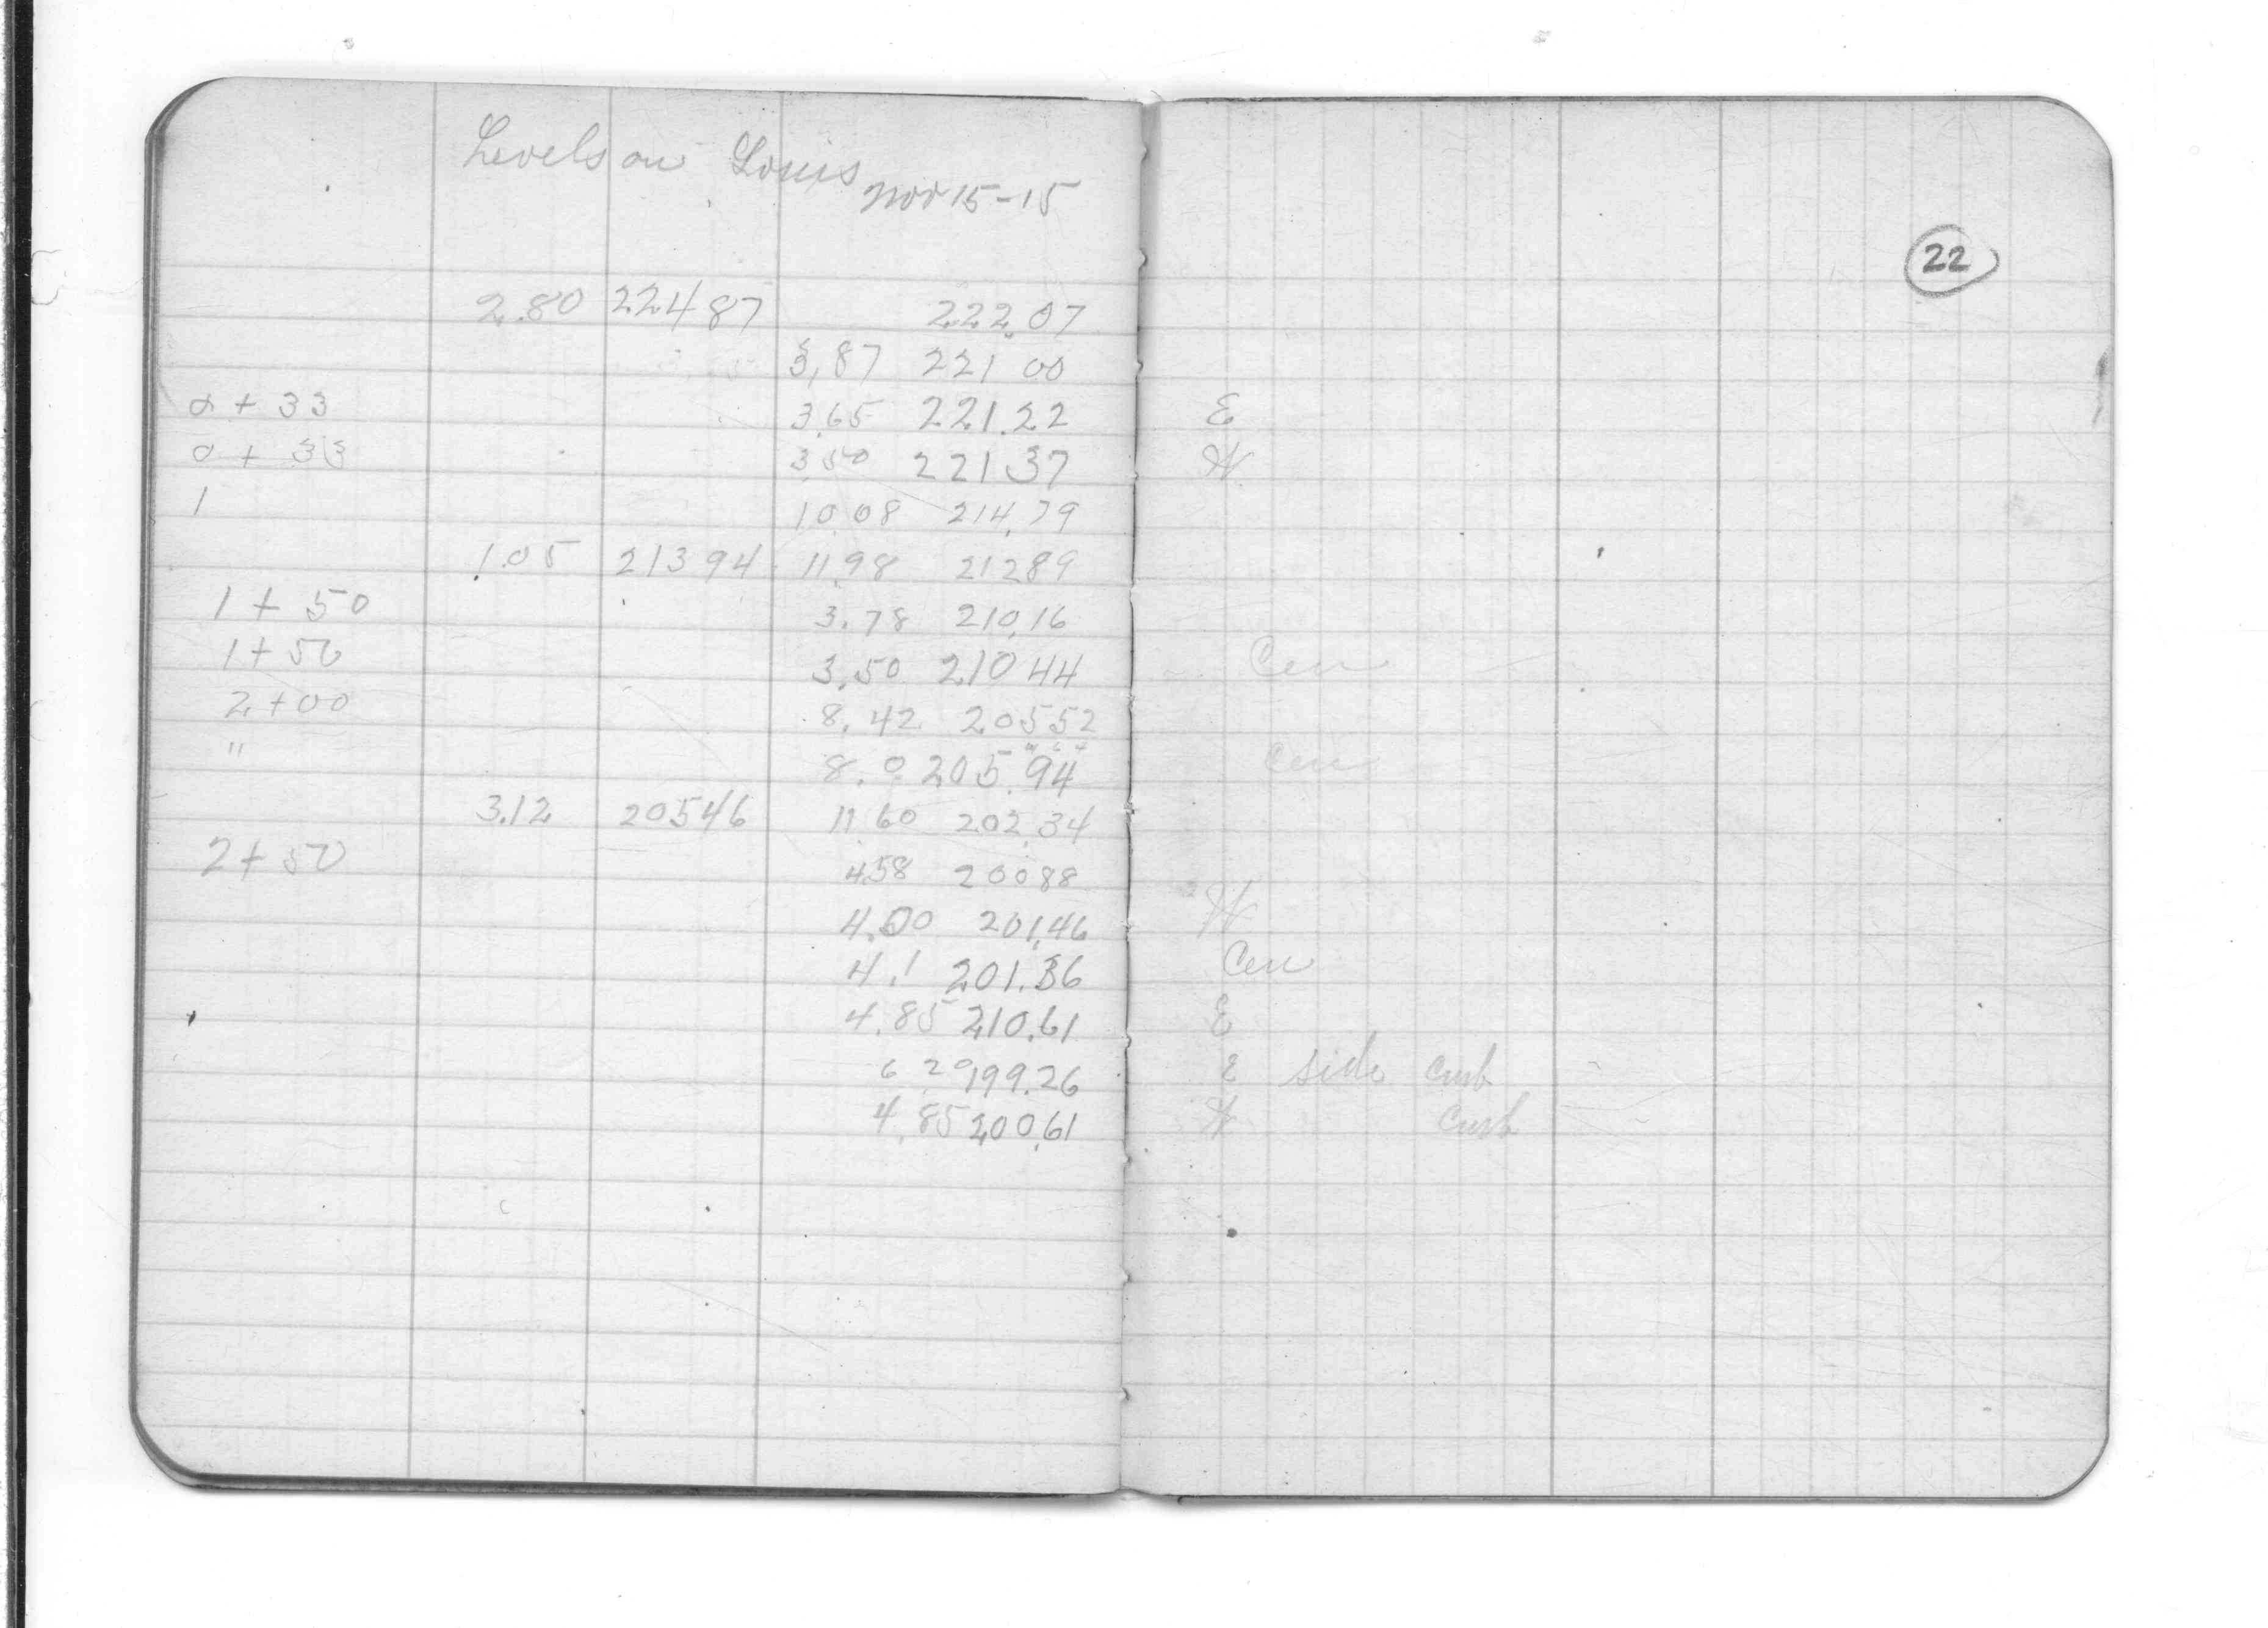 Levels on Louis
Nov 15-15
22
2.80 22487 222.07
3,87 221 00
0 + 33 3.65 221.22 E
0 + 33 3.50 221 37 W
1 10 08 214.79
1.05 21394 11.98 21289
1 + 50 3.78 210.16
1 + 50 3.50 210 44 Cen
2 + 00 8.42 20552
" 8.0 205.94 Cen
3.12 20546 11 60 202.34
2 + 50 4.58 20088 W
4.00 201.46
4.1 201.36 Cen
4.85 210.61 E
6 20 199.26 E side curb
4.85 200.61 W curb